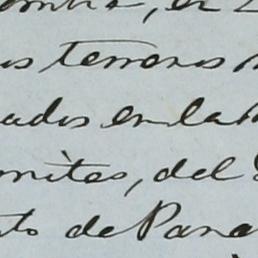 ombra, en
us terrenos
ados en la
mites, del
to de Pana